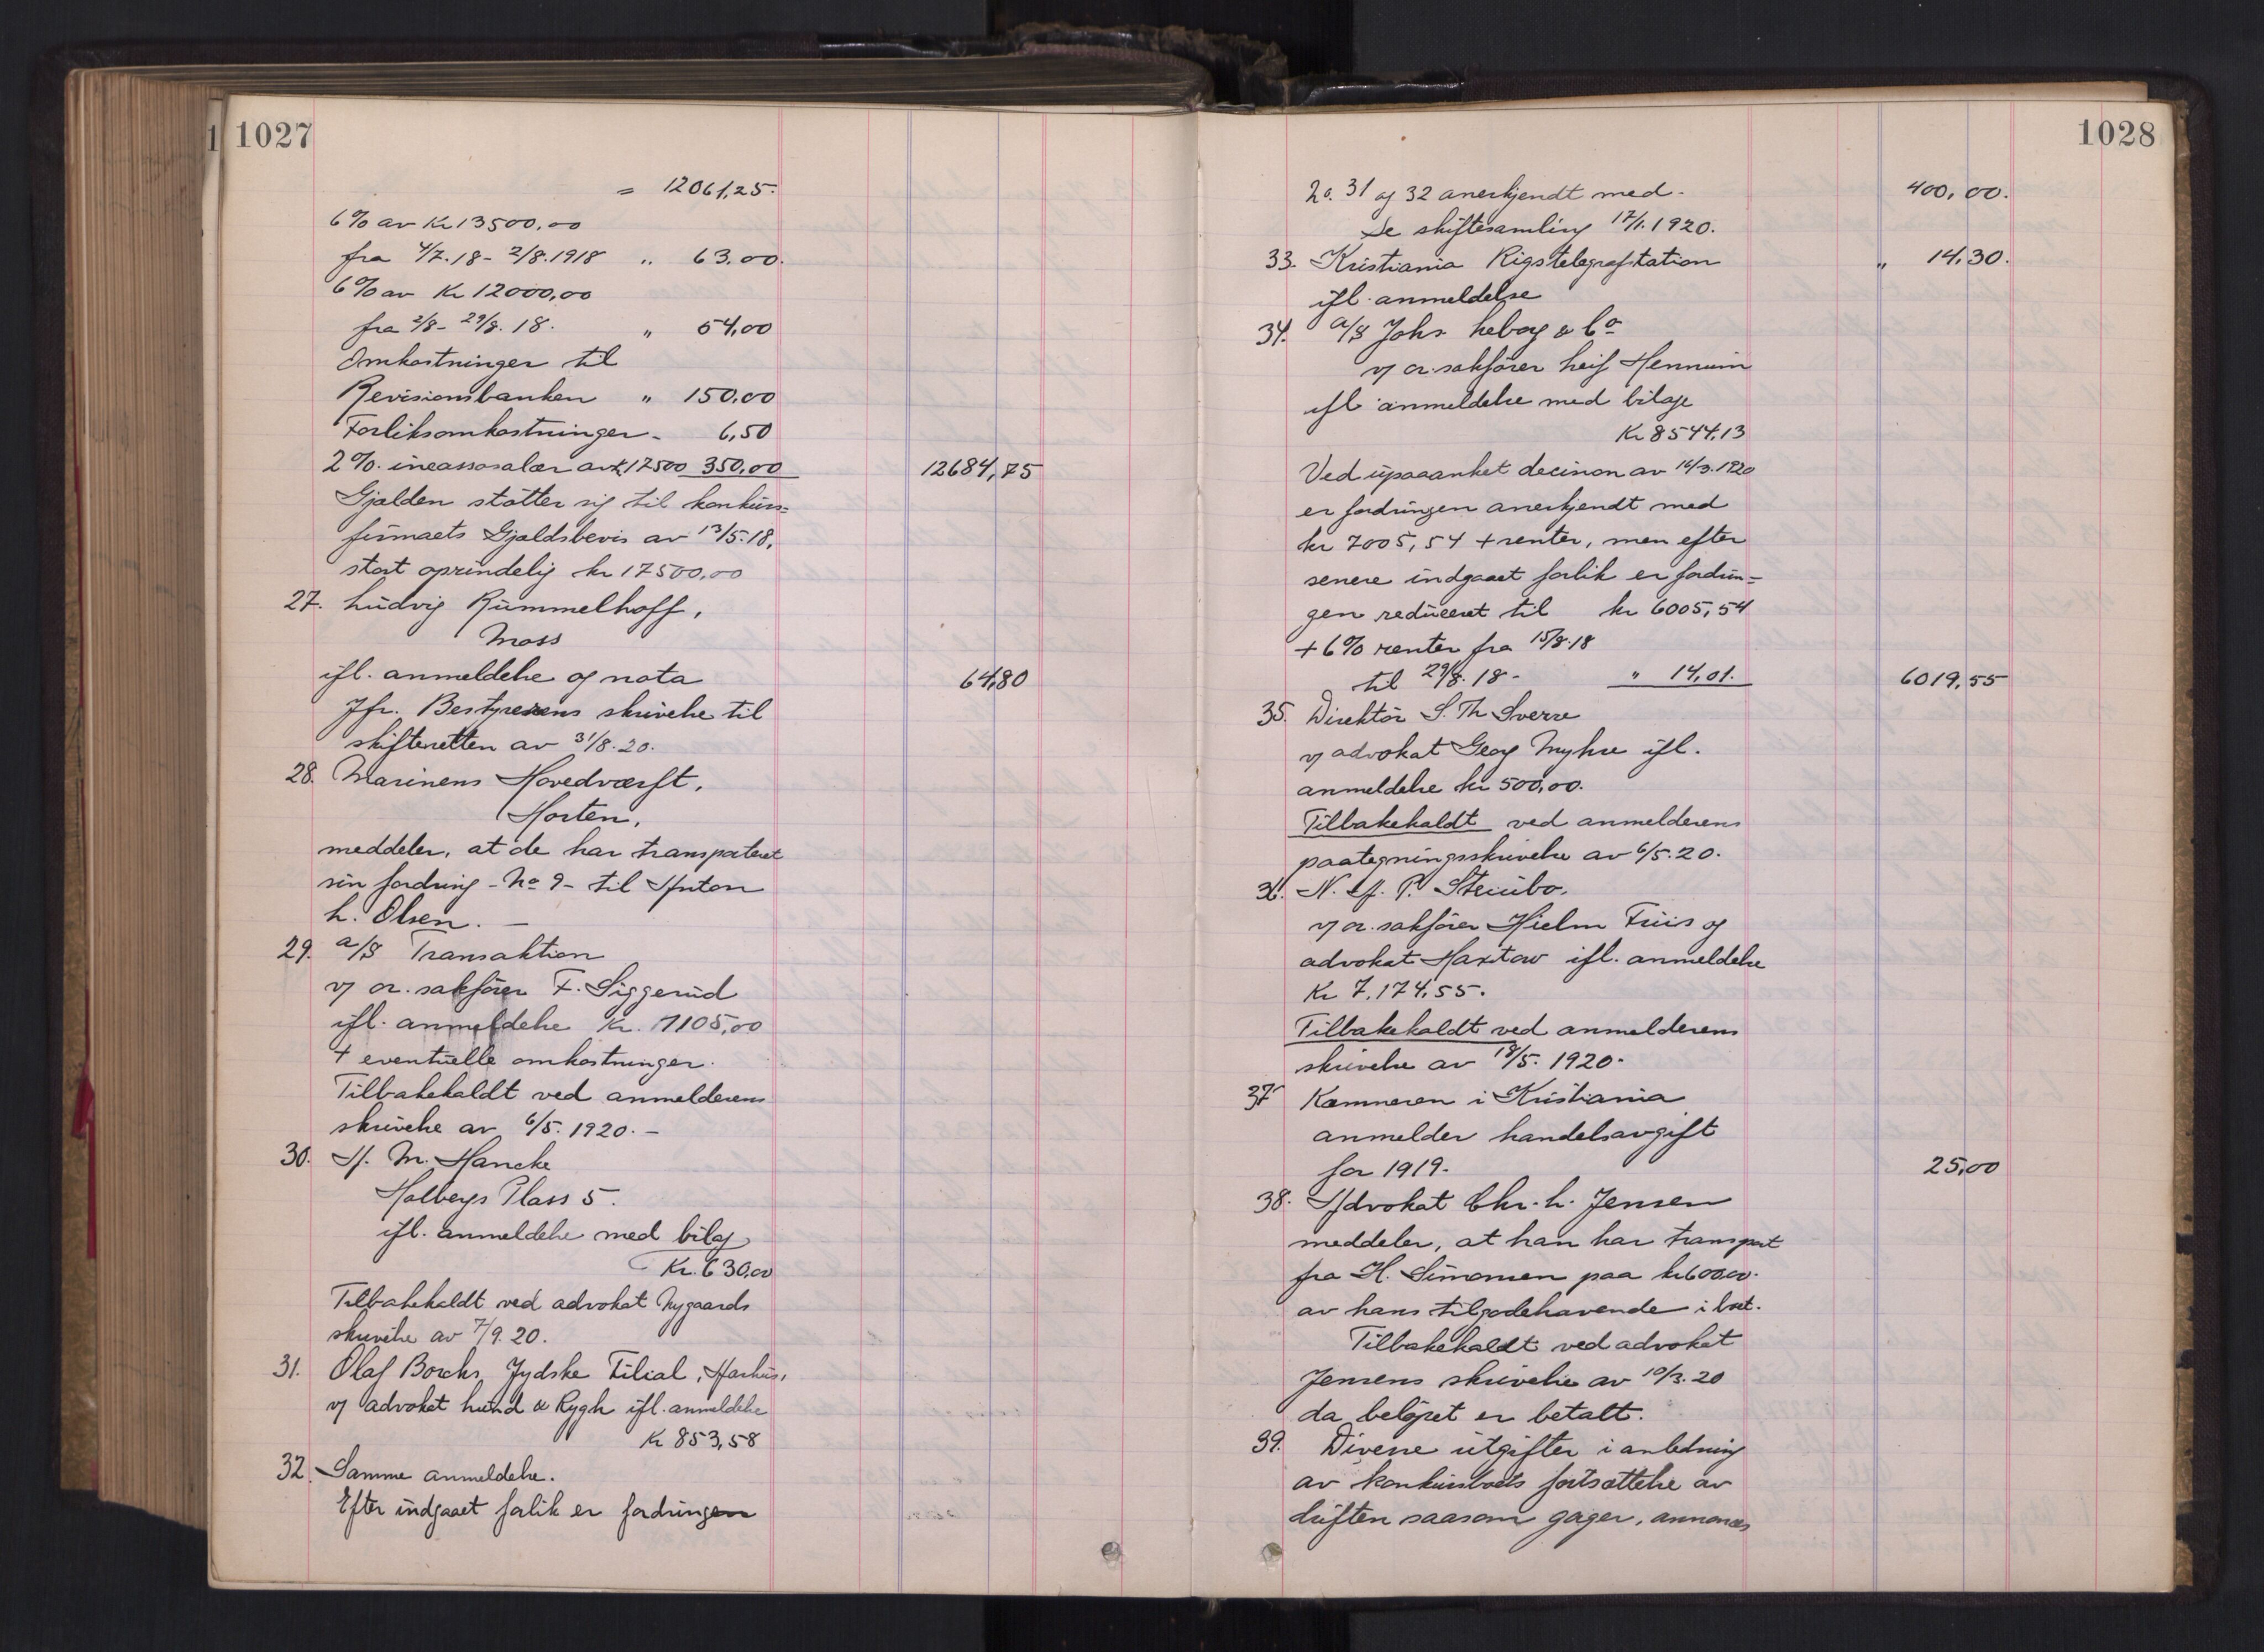 1027
= 12061,25.
6% av Kr 13500,00
fra 4/7.18 - 2/8.1918 „ 63,00.
6% av Kr 12000,00
fra 2/8 - 29/8. 18. „ 54,00
Omkostninger til
Revisionsbanken „ 150,00
Forliksomkostninger - 6,50
2%. incassosalær av k 17500 350,00 12684,75
Gjælden støtter sig til konkurs-
firmaets Gjældsbevis av 13/5.18,
stort oprindelig kr 17500,00
27. Ludvig Rummelhoff,
Moss
ifl. anmeldelse og nota 64,80
Jfr. Bestyrerens skrivelse til
skifteretten av 31/8.20.
28. Marinens Hovedværft,
Horten,
meddeler, at de har transporteret
sin fordring - No 9 - til Anton
L. Olsen. -
29. a/S Transaktion
v/ or. sakfører F. Siggerud
ifl. anmeldelse Kr. 7105,00
+ eventuelle omkostninger.
Tilbakekaldt ved anmelderens
skrivelse av 6/5. 1920. -
30. A. M. Hancke
Holbergs Plass 5.
ifl. anmeldelse med bilag
Kr. 630,00
Tilbakekaldt ved advokat Nygaards
skrivelse av 7/9. 20.
31. Olaf Borchs Jydske Filial, Aarhus,
v/ advokat Lund & Rygh ifl. anmeldelse
Kr 853,58
32. Samme anmeldelse.
Efter indgaaet forlik er fordringen
1028
20. 31 og 32 anerkjendt med - 400,00.
Se skiftesamling 17/1. 1920.
33. Kristiania Rigstelegrafstation „ 14,30.
ifl. anmeldelse
34. a/S Johs Heboy & Co
v/ or. sakfører Leif Hennum
ifl anmeldelse med bilage
Kr 8544,13
Ved upaaanket decision av 16/3. 1920
er fordringen anerkjendt med
kr 7005,54 + renter, men efter
senere indgaaet forlik er fordrin-
gen reduceret til kr 6005,54
+ 6% renter fra 15/8.18
til 29/8. 18 - „ 14,01. 6019,55
35. Direktør S. Th Sverre
v/ advokat Georg Myhre ifl.
anmeldelse kr 500,00.
Tilbakekaldt ved anmelderens
paategningsskrivelse av 6/5. 20.
36. N. A. P. Stenibo,
v/ or. sakfører Hjelm Friis og
advokat Haxtow ifl. anmeldelse
Kr 7,174,55.
Tilbakekaldt ved anmelderens
skrivelse av 18/5. 1920.
37 Kæmneren i Kristiania
anmelder handelsavgift
for 1919. 25,00
38. Advokat Chr. L. Jensen
meddeler, at han har transport
fra H. Simonsen paa kr 600,00.
av hans tilgodehavende i boet.
Tilbakekaldt ved advokat
Jensens skrivelse av 10/3. 20
da beløpet er betalt.
39. Diverse utgifter i anledning
av konkursboets fortsættelse av
driften saasom gager, annonces